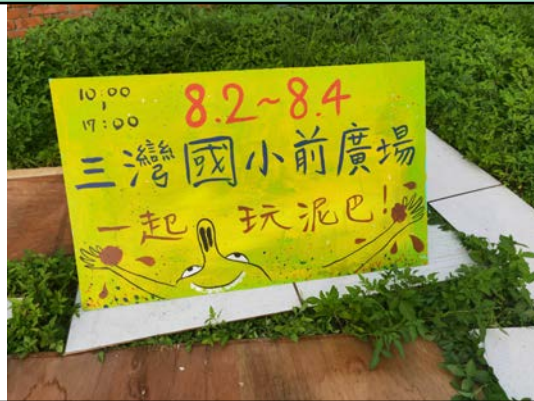 10:00
17:00
8.2~8.4
三灣國小前廣場
一起玩泥巴!